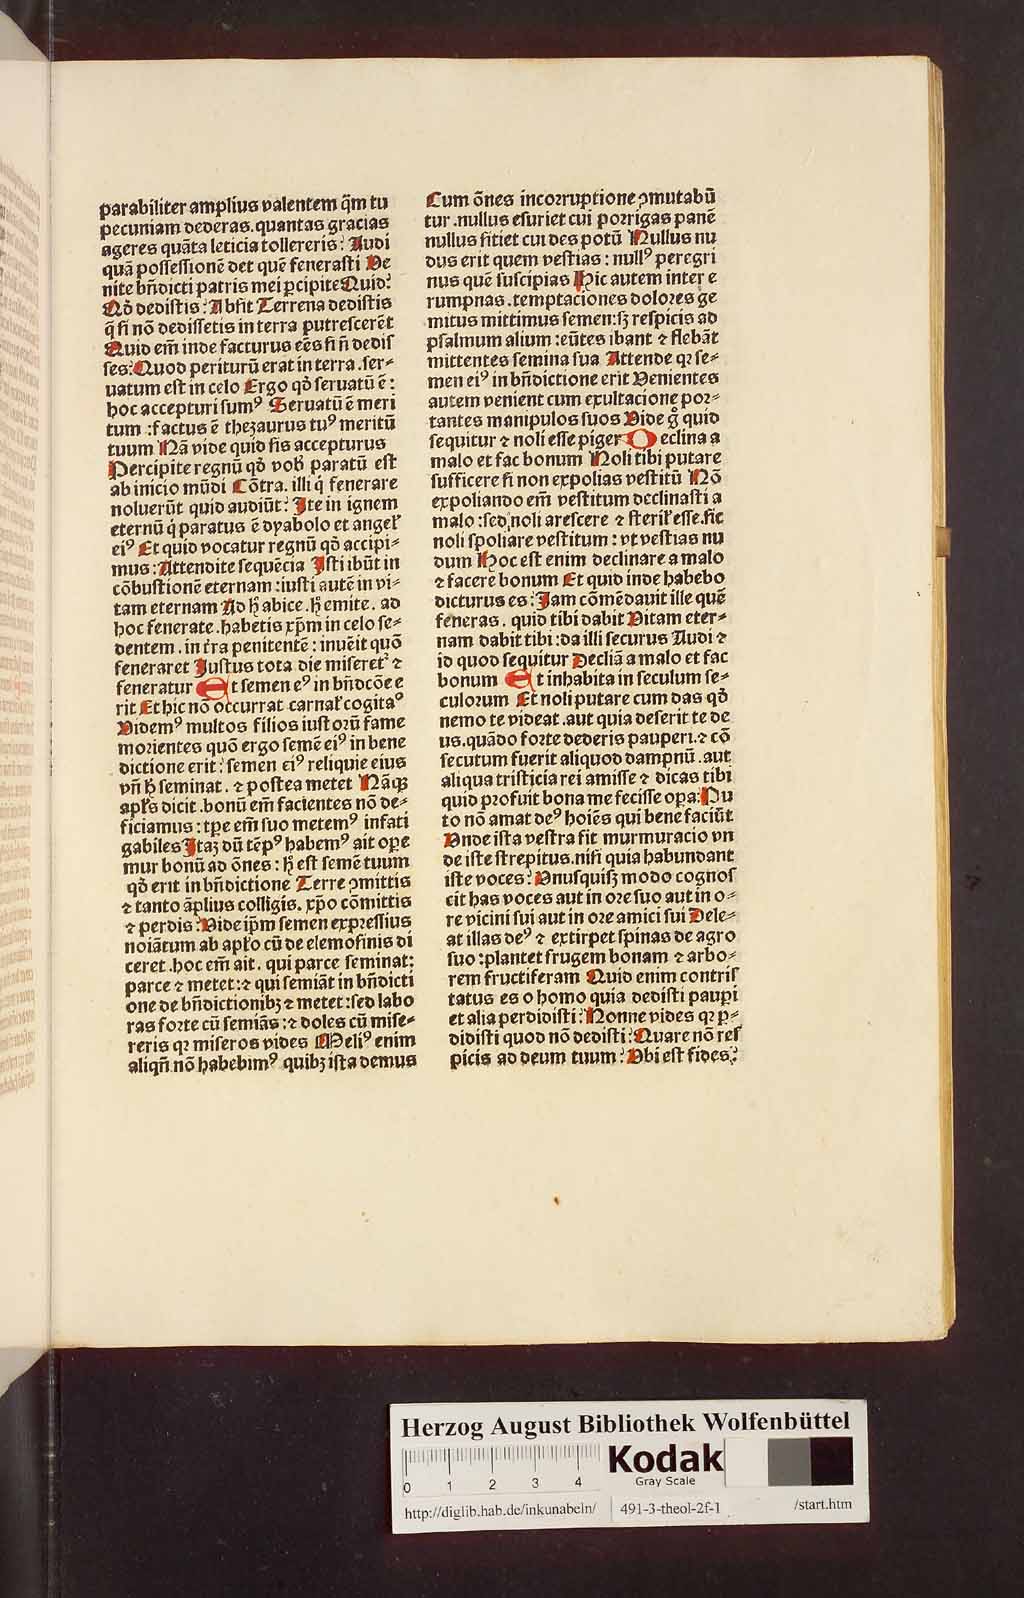 parabiliter amplius valentem q̄m tu
pecuniam dederas. quantas gracias
ageres quāta leticia tollereris: Audi
quā possessionē det quē fenerasti Ve
nite bn̄dicti patris mei ꝑcipite Quid:
Qd̄ dedistis: Absit Terrena dedistis
q̄ si nō dedissetis in terra putrescerēt
Quid em̄ inde facturus eēs si n̄ dedis
ses: Quod periturū erat in terra. ser⸗
uatum est in celo Ergo qd̄ seruatū ē:
hoc accepturi sumꝰ Seruatū ē meri
tum: factus ē thezaurus tuꝰ meritū
tuum Nā vide quid sis accepturus
Percipite regnū qd̄ vob̄ paratū est
ab inicio mūdi Cōtra. illi q̄ fenerare
noluerūt quid audiūt: Ite in ignem
eternū q̇ paratus ē dyabolo et angeł
eiꝰ Et quid vocatur regnū qd̄ accipi⸗
mus: Attendite sequēcia Isti ibūt in
cōbustionē eternam: iusti autē in vi⸗
tam eternam Ad h̨ abice. h̨ emite. ad
hoc fenerate. habetis xp̄m in celo se⸗
dentem. in tr̄ra penitentē: inuēit quō
feneraret Iustus tota die miseret' ⁊
feneratur Et semen eꝰ in bn̄dcōe e
rit Et hic nō occurrat carnał cogitaᵒ
Videmꝰ multos filios iustorū fame
morientes quō ergo semē eiꝰ in bene
dictione erit: semen eiꝰ reliquie eius
vn̄ h̨ seminat. ⁊ postea metet Nāqꝫ
apłs dicit. bonū em̄ facientes nō de⸗
ficiamus: tꝑe em̄ suo metemꝰ infati
gabiles Itaꝫ dū tēpꝰ habemꝰ ait oꝑe
mur bonū ad ōnes: h̨ est semē tuum
qd̄ erit in bn̄dictione Terre ꝯmittis
⁊ tanto āplius colligis. xp̄o cōmittis
⁊ perdis: Vide ip̄m semen expressius
noiātum ab apło cū de elemosinis di
ceret. hoc em̄ ait. qui parce seminat:
parce ⁊ metet: ⁊ qui semiāt in bn̄dicti
one de bn̄dictionibꝫ ⁊ metet: sed labo
ras forte cū semiās: ⁊ doles cū mise⸗
reris qꝛ miseros vides Meliꝰ enim
aliqn̄ nō habebimꝰ quibꝫ ista demus
Cum ōnes incorruptione ꝯmutabū
tur. nullus esuriet cui porrigas panē
nullus sitiet cui des potū Nullus nu
dus erit quem vestias: nullꝰ peregri
nus quē suscipias Hic autem inter e
rumpnas. temptaciones dolores ge
mitus mittimus semen: sꝫ respicis ad
psalmum alium: eūtes ibant ⁊ flebāt
mittentes semina sua Attende qꝛ se⸗
men eiꝰ in bn̄dictione erit Venientes
autem venient cum exultacione por⸗
tantes manipulos suos Vide g̊ quid
sequitur ⁊ noli esse piger Declina a
malo et fac bonum Noli tibi putare
sufficere si non expolias vestitū Nō
expoliando em̄ vestitum declinasti a
malo: sed noli arescere ⁊ sterił esse. sic
noli spoliare vestitum: vt vestias nu
dum Hoc est enim declinare a malo
⁊ facere bonum Et quid inde habebo
dicturus es: Iam cōmēdauit ille quē
feneras. quid tibi dabit Vitam eter⸗
nam dabit tibi: da illi securus Audi ⁊
id quod sequitur Decliā a malo et fac
bonum Et inhabita in seculum se⸗
culorum Et noli putare cum das qd̄
nemo te videat. aut quia deserit te de
us. quādo forte dederis pauperi. ⁊ cō
secutum fuerit aliquod dampnū. aut
aliqua tristicia rei amisse ⁊ dicas tibi
quid profuit bona me fecisse oꝑa: Pu
to nō amat deꝰ hoīes qui bene faciūt
Vnde ista vestra fit murmuracio vn
de iste strepitus. nisi quia habundant
iste voces: Vnusquisꝫ modo cognos
cit has voces aut in ore suo aut in o⸗
re vicini sui aut in ore amici sui Dele⸗
at illas deꝰ ⁊ extirpet spinas de agro
suo: plantet frugem bonam ⁊ arbo⸗
rem fructiferam Quid enim contris
tatus es o homo quia dedisti pauꝑi
et alia perdidisti: Nonne vides qꝛ ꝑ⸗
didisti quod nō dedisti: Quare nō res
picis ad deum tuum: Vbi est fides:
Herzog August Bibliothek Wolfenbüttel
Kodak
Gray Scale
0 1 2 3 4
http://diglib.hab.de/inkunabeln/ 491-3-theol-2f-1 /start.htm